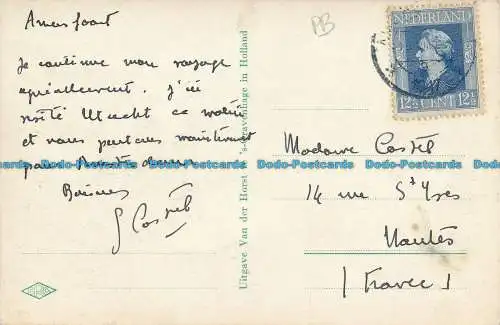 Amersfoort
Je continue mon voyage
agréablement. J'ai
visité Utrecht ce matin
et nous partons maintenant
pour Amsterdam
Baisers
G Costel
Uitgave Van der Horst 's-Gravenhage in Holland
PB
NEDERLAND
12½ CENT 12½
Madame Costel
14 rue St Yves
Nantes
(France)
Dodo-Postcards Dodo-Postcards Dodo-Postcards Dodo-Postcards Dodo-Postcards